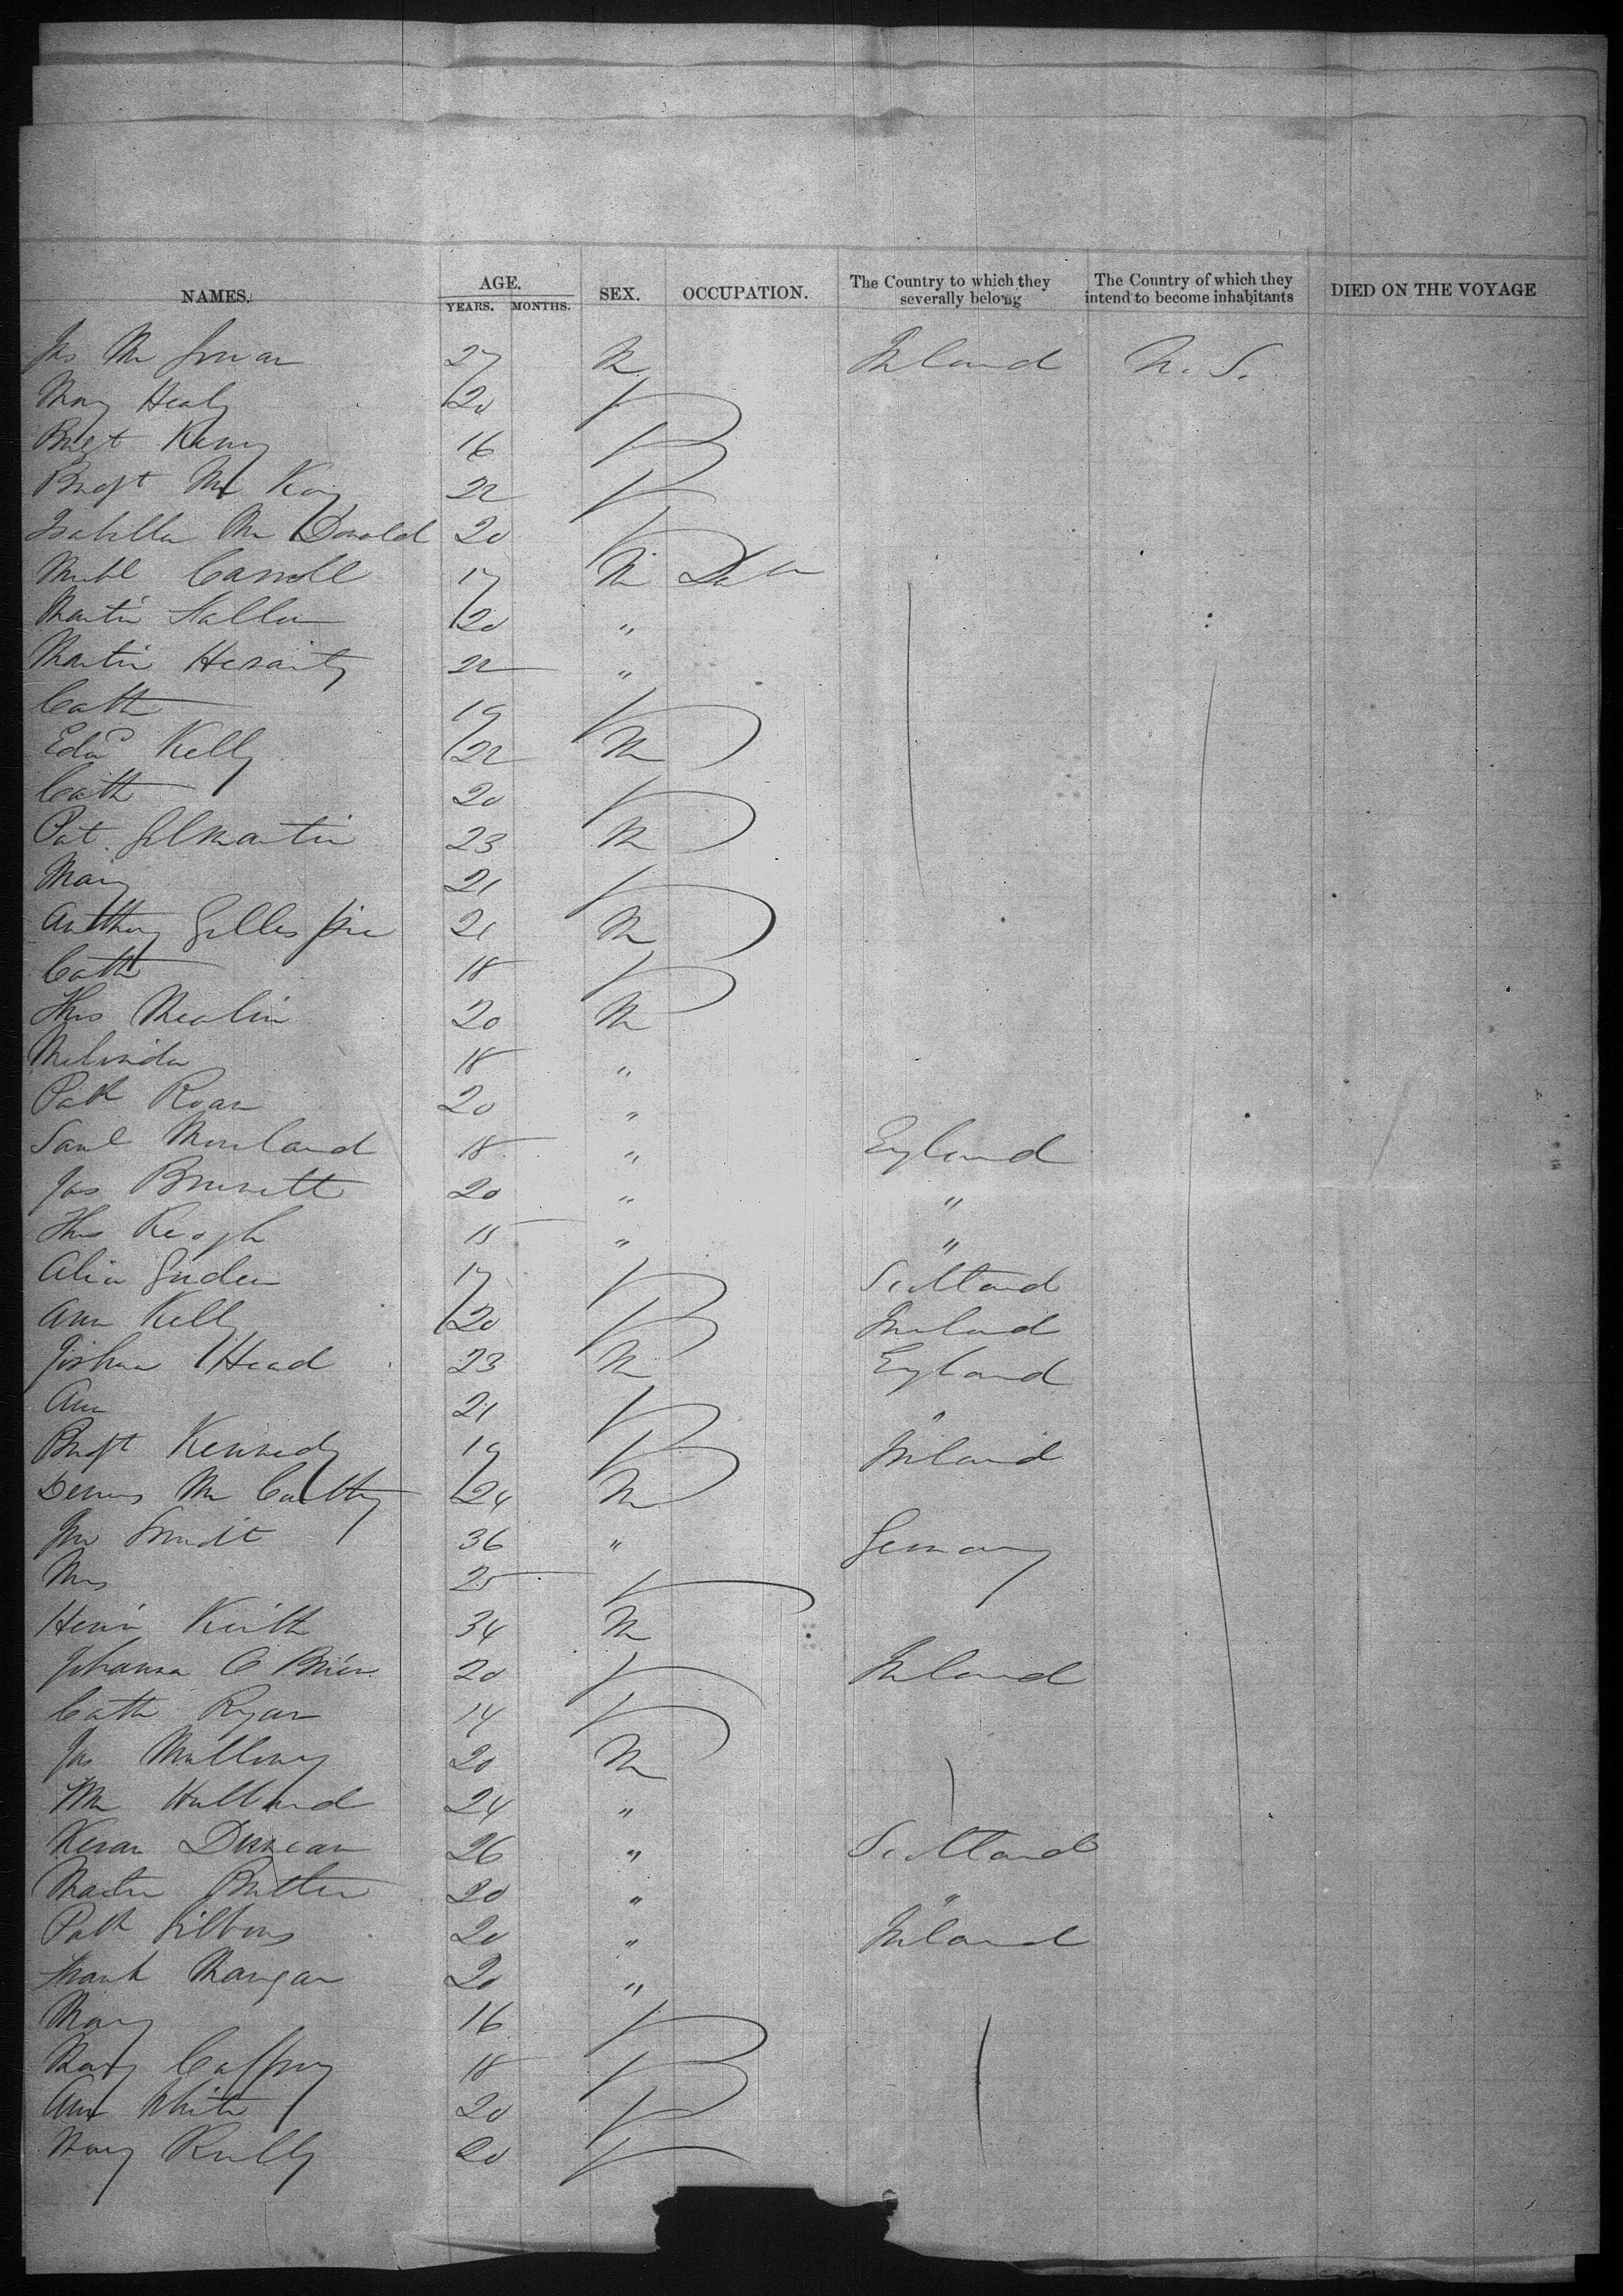 NAMES. AGE. YEARS. MONTHS. SEX. OCCUPATION. The Country to which they severally belong The Country of which they intend to become inhabitants DIED ON THE VOYAGE
Jas Mc 27 M Ireland U. S.
Mary Healy 20 F
Bridgt 16 F
Bridgt Mc Kay 22 F
Isabella Mc Donald 20 F
Michl Carroll 17 M
Martin 20 "
Martin Heraity 22 "
Cath 19 F
Edwd Kelly 22 M
Cath 20 F
Pat Gilmartin 23 M
Mary 21 F
Anthony Gillespie 21 M
Cath 18 F
Thos Mealin 20 M
Melinda 18 "
Patk Roan 20 "
Saml Moreland 18 " England
Jas 20 " "
Thos Keogh 15 " "
17 F Scotland
Ann Kelly 20 F Ireland
Joshua Head 23 M England
Ann 21 F "
Bridgt Kennedy 19 F Ireland
Dennis Mc Carthy 24 M
36 " Germany
Mrs 25 F
Keith 34 M
Johanna O Brien 20 F Ireland
Cath Ryan 14 F
Jas 20 M
24 "
Duncan 26 " Scotland
Martin 20 " "
Patk Gibbons 20 " Ireland
Frank Mangan 20 "
Mary 16 F
Mary 18 F
Ann White 20 F
Mary 20 F